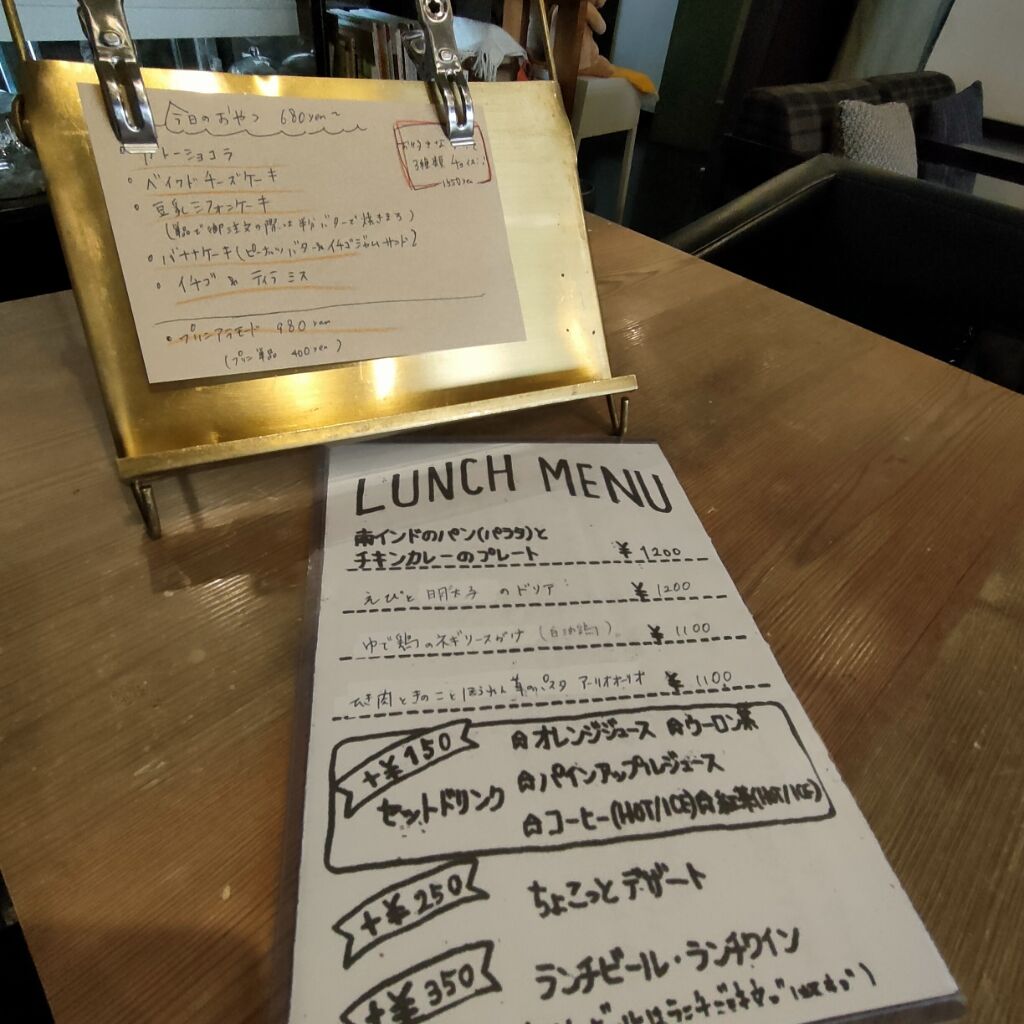 今日のおやつ 680yen~
3種類 チョイス
1350yen
ガトーショコラ
ベイクドチーズケーキ
豆乳シフォンケーキ
バナナケーキ(ピーナッツバター&イチゴジャムサンド)
イチゴ & ティラミス
プリンアラモード 980yen
(プリン単品 400yen)
LUNCH MENU
南インドのパン(パラタ)と
チキンカレーのプレート ¥1200
えびと明太子のドリア ¥1200
ゆで鶏のネギソースがけ ¥1100
ひき肉ときのことほうれん草のパスタ アーリオオーリオ ¥1100
+¥150
セットドリンク
☆オレンジジュース ☆ウーロン茶
☆パインアップルジュース
☆コーヒー(HOT/ICE)☆紅茶(HOT/ICE)
+¥250 ちょこっとデザート
+¥350 ランチビール・ランチワイン